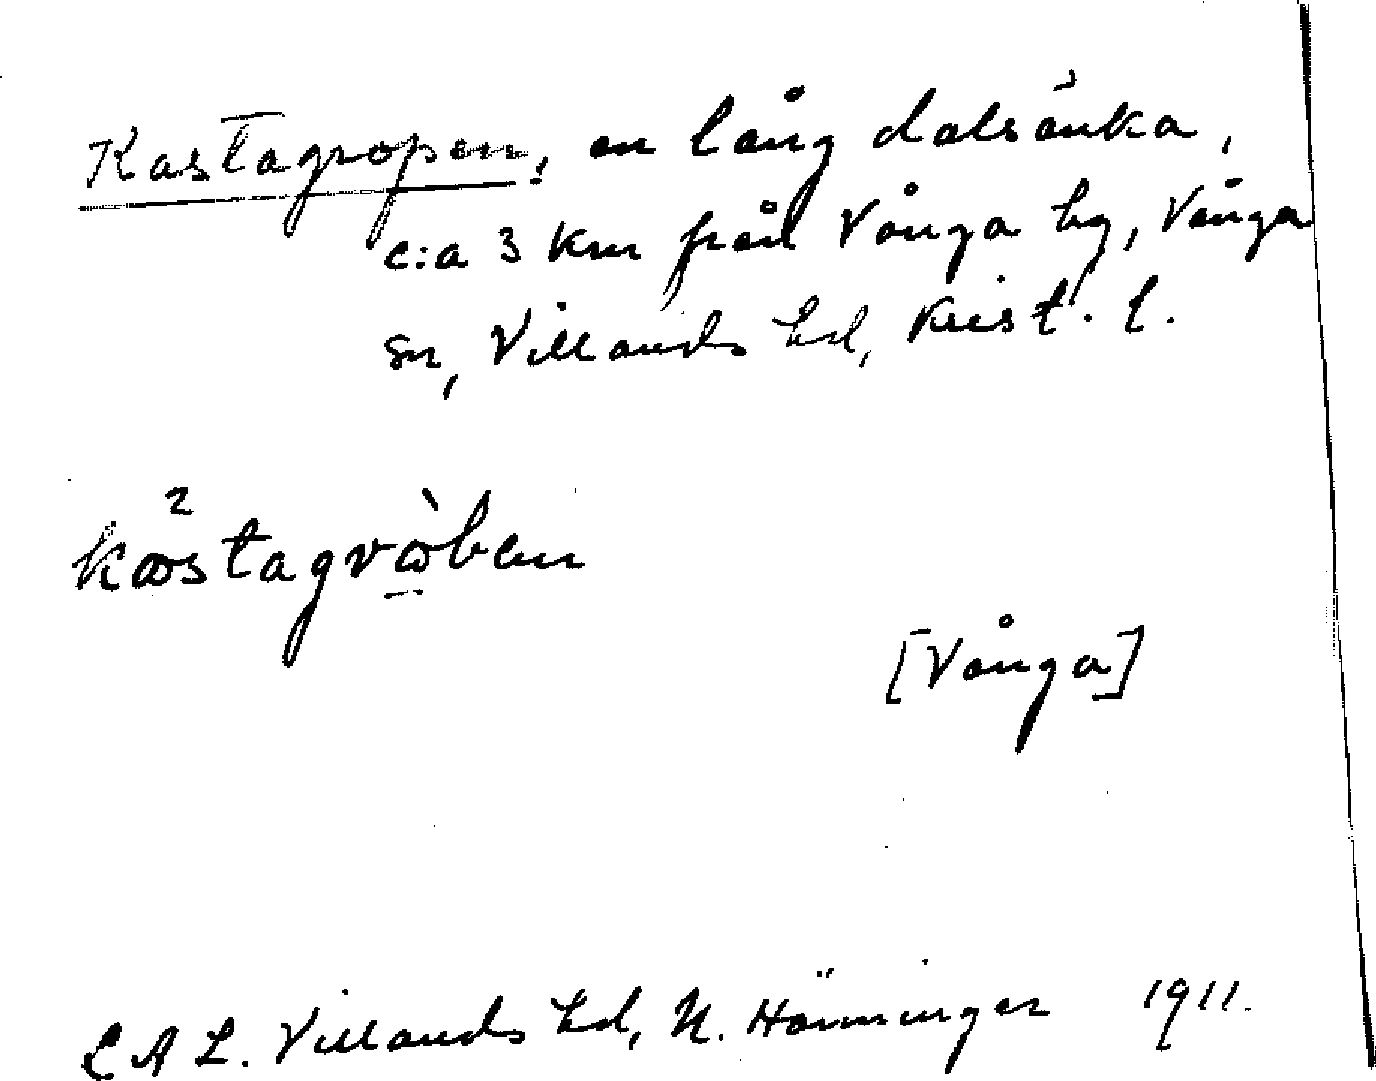 Kastagropen, en lång dalsänka,
c:a 3 km från Vånga by, Vånga
sn, Villands hd, Krist. l.
[Vånga]
L A L. Villands hd, N. Hänninger 1911.